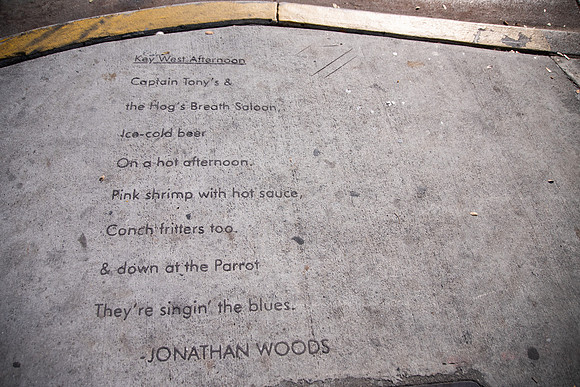 Key West Afternoon
Captain Tony's &
the Hog's Breath Saloon,
Ice-cold beer
On a hot afternoon.
Pink shrimp with hot sauce,
Conch fritters too.
& down at the Parrot
They're singin' the blues.
-JONATHAN WOODS